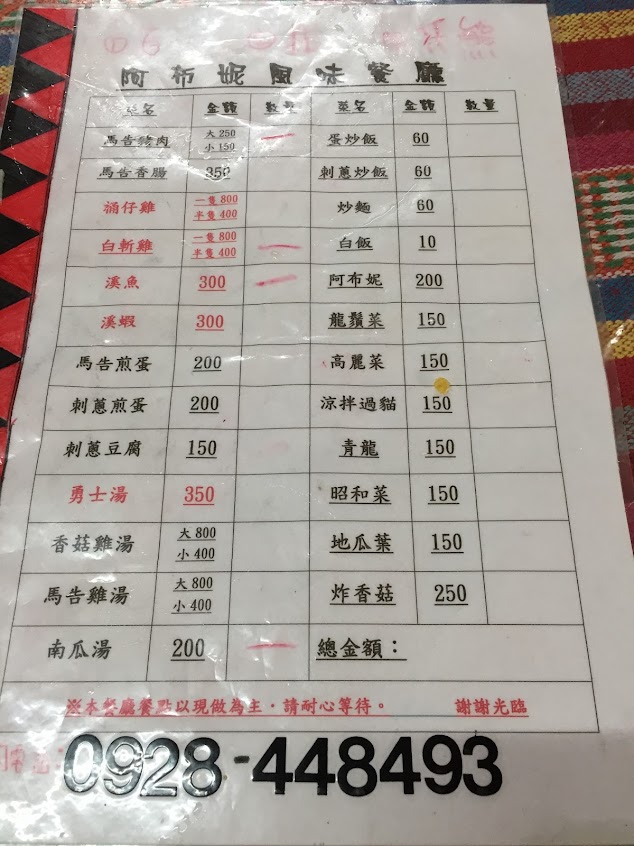 阿布妮風味餐廳
菜名 金額 數量 菜名 金額 數量
馬告豬肉 大250 小150 一 蛋炒飯 60
馬告香腸 350 刺蔥炒飯 60
桶仔雞 一隻800 半隻400 炒麵 60
白斬雞 一隻800 半隻400 一 白飯 10
溪魚 300 一 阿布妮 200
溪蝦 300 龍鬚菜 150
馬告煎蛋 200 高麗菜 150
刺蔥煎蛋 200 涼拌過貓 150
刺蔥豆腐 150 青龍 150
勇士湯 350 昭和菜 150
香菇雞湯 大800 小400 地瓜葉 150
馬告雞湯 大800 小400 炸香菇 250
南瓜湯 200 一 總金額：
※本餐廳餐點以現做為主，請耐心等待。 謝謝光臨
0928-448493